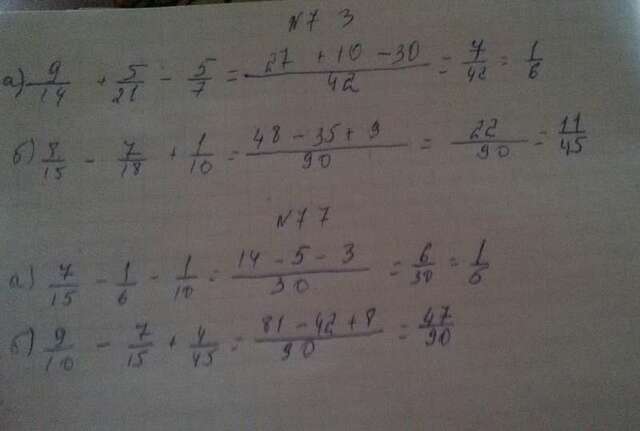 N73
а) 9/14 + 5/21 - 5/7 = (27 + 10 - 30)/42 = 7/42 = 1/6
б) 8/15 - 7/18 + 1/10 = (48 - 35 + 9)/90 = 22/90 = 11/45
N77
а) 7/15 - 1/6 - 1/10 = (14 - 5 - 3)/30 = 6/30 = 1/5
б) 9/10 - 7/15 + 4/45 = (81 - 42 + 8)/90 = 47/90